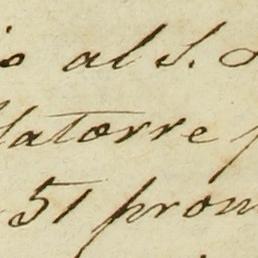 al S.
latorre
51 pron